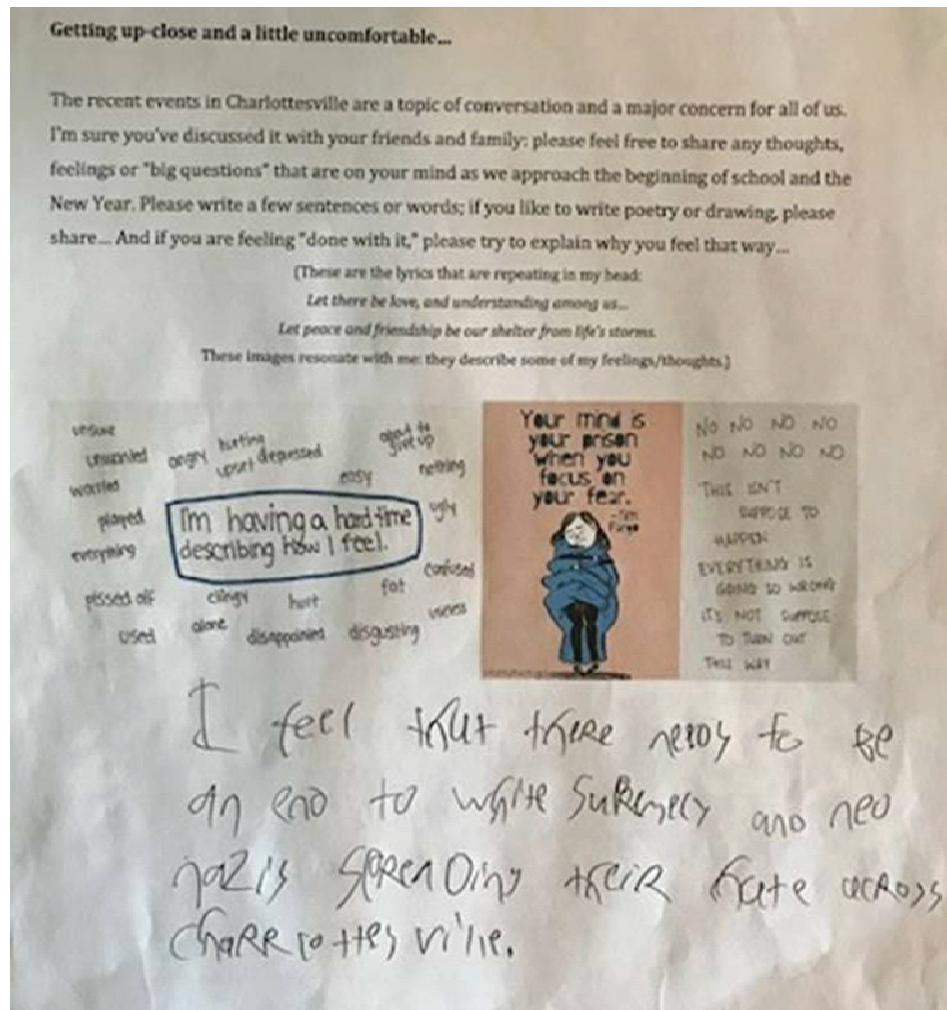 Getting up-close and a little uncomfortable...
The recent events in Charlottesville are a topic of conversation and a major concern for all of us.
I'm sure you've discussed it with your friends and family; please feel free to share any thoughts,
feelings or "big questions" that are on your mind as we approach the beginning of school and the
New Year. Please write a few sentences or words; if you like to write poetry or drawing, please
share... And if you are feeling "done with it," please try to explain why you feel that way...
(These are the lyrics that are repeating in my head:
Let there be love, and understanding among us...
Let peace and friendship be our shelter from life's storms.
These images resonate with me: they describe some of my feelings/thoughts.)
unsure
unwanted
worries
played
everything
pissed off
used
angry
hurting
upset depressed
easy
give up
nothing
ugly
I'm having a hard time
describing how I feel.
confused
fat
useless
clingy
hurt
alone
disappointed
disgusting
Your mind is
your prison
when you
focus on
your fear.
NO NO NO NO
NO NO NO NO
THIS ISN'T
SUPPOSE TO
HAPPEN
EVERYTHING IS
GOING SO WRONG
IT'S NOT SUPPOSE
TO TURN OUT
THIS WAY
I feel that there needs to be
an end to white and neo
nazis spreading their hate across